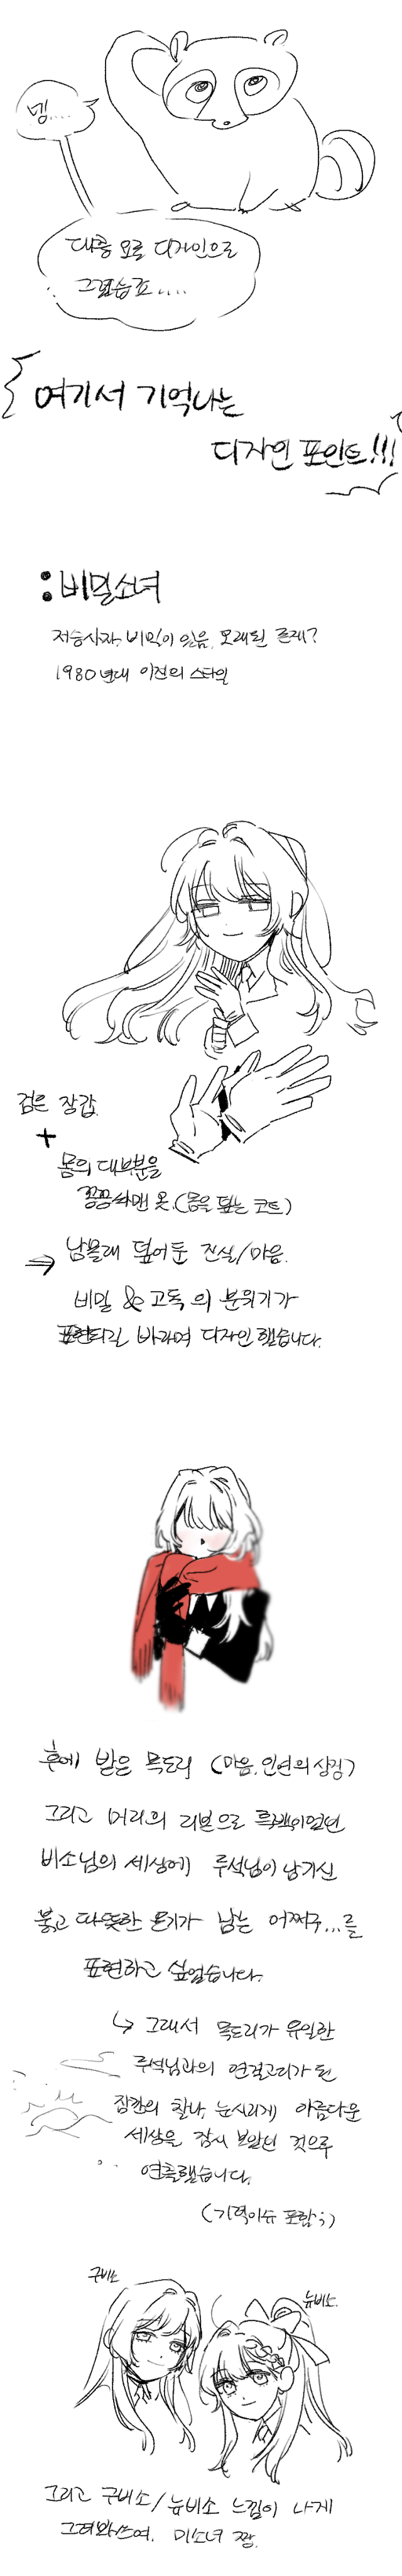 넹....
대충 요론 디자인으로
그렸습죠....
여기서 기억나는
디자인 포인트!!!
:비밀소녀
저승사자, 비밀이 있음, 오래된 존재?
1980년대 이전의 스타일
검은 장갑
+
몸의 대부분을
꽁꽁 싸맨 옷.(몸을 덮는 코트)
⇒ 남몰래 덮어둔 진실/마음.
비밀 & 고독의 분위기가
표현되길 바라며 디자인했습니다.
후에 받은 목도리 (마음, 인연의 상징)
그리고 머리의 리본으로 흑백이었던
비소님의 세상에 루석님이 남기신
붉고 따뜻한 온기가 남는 어쩌구...를
표현하고 싶었습니다.
↳ 그래서 목도리가 유일한
루석님과의 연결고리가 된
잠깐의 찰나, 눈시리게 아름다운
세상을 잠시 보았던 것으루
연출했습니다.
(기력이슈 포함;)
구비소
뉴비소.
그리고 구비소/뉴비소 느낌이 나게
그려봐쓰여. 미소녀 짱.